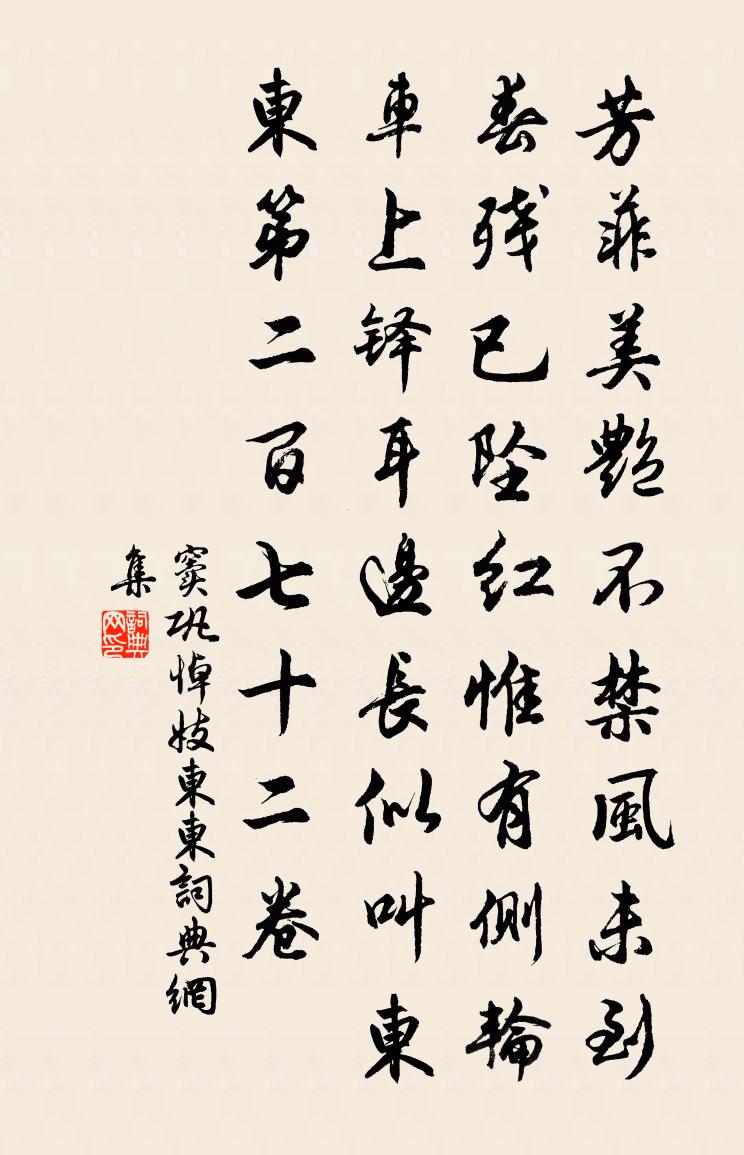 芳菲美艷不禁風未到
春残已坠红惟有側輪
車上铎耳邊長似叫東
東第二百七十二卷
窦巩悼妓東東詞典網
集
詞典网印